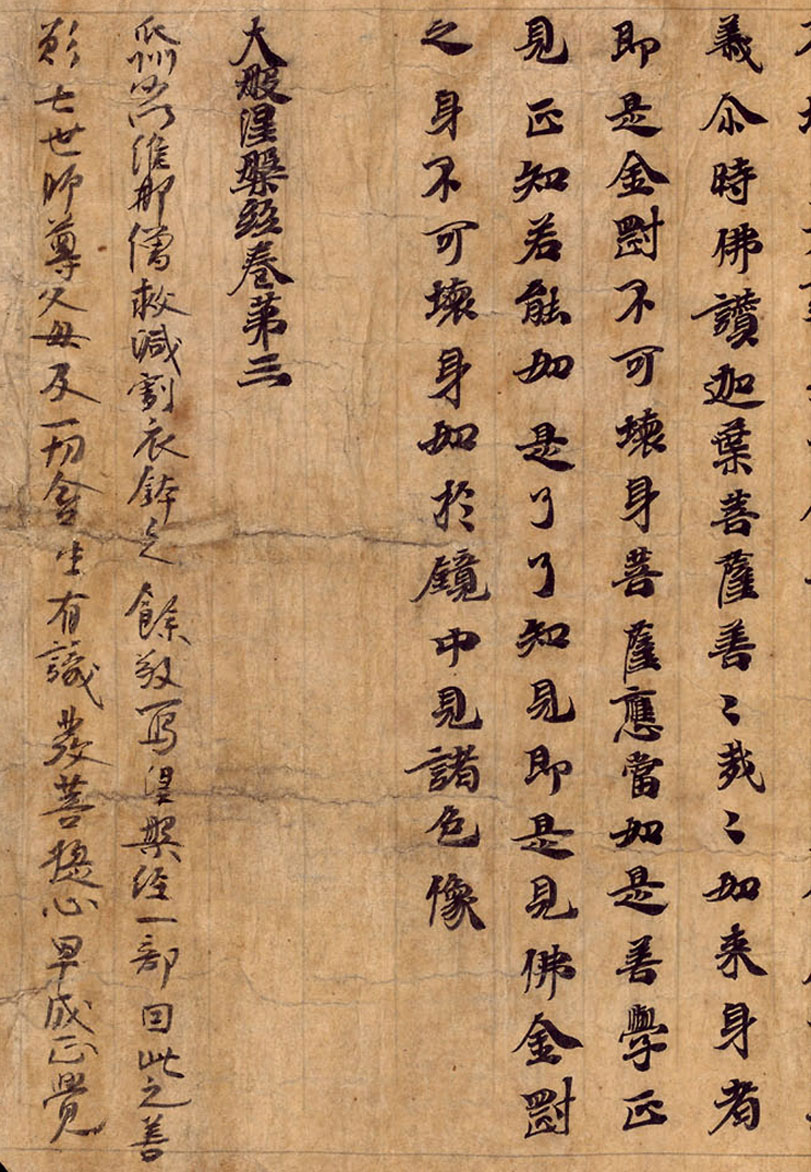 義尒時佛讚迦葉菩薩善〻哉〻如来身者
即是金剛不可壞身菩薩應當如是善學正
見正知若能如是了了知見即是見佛金剛
之身不可壞身如於鏡中見諸色像
大般涅槃經卷第三
維那僧救減割衣鉢之餘敬寫涅槃經一部因此之善
願七世師尊父母及一切含生有識發菩提心早成正覺